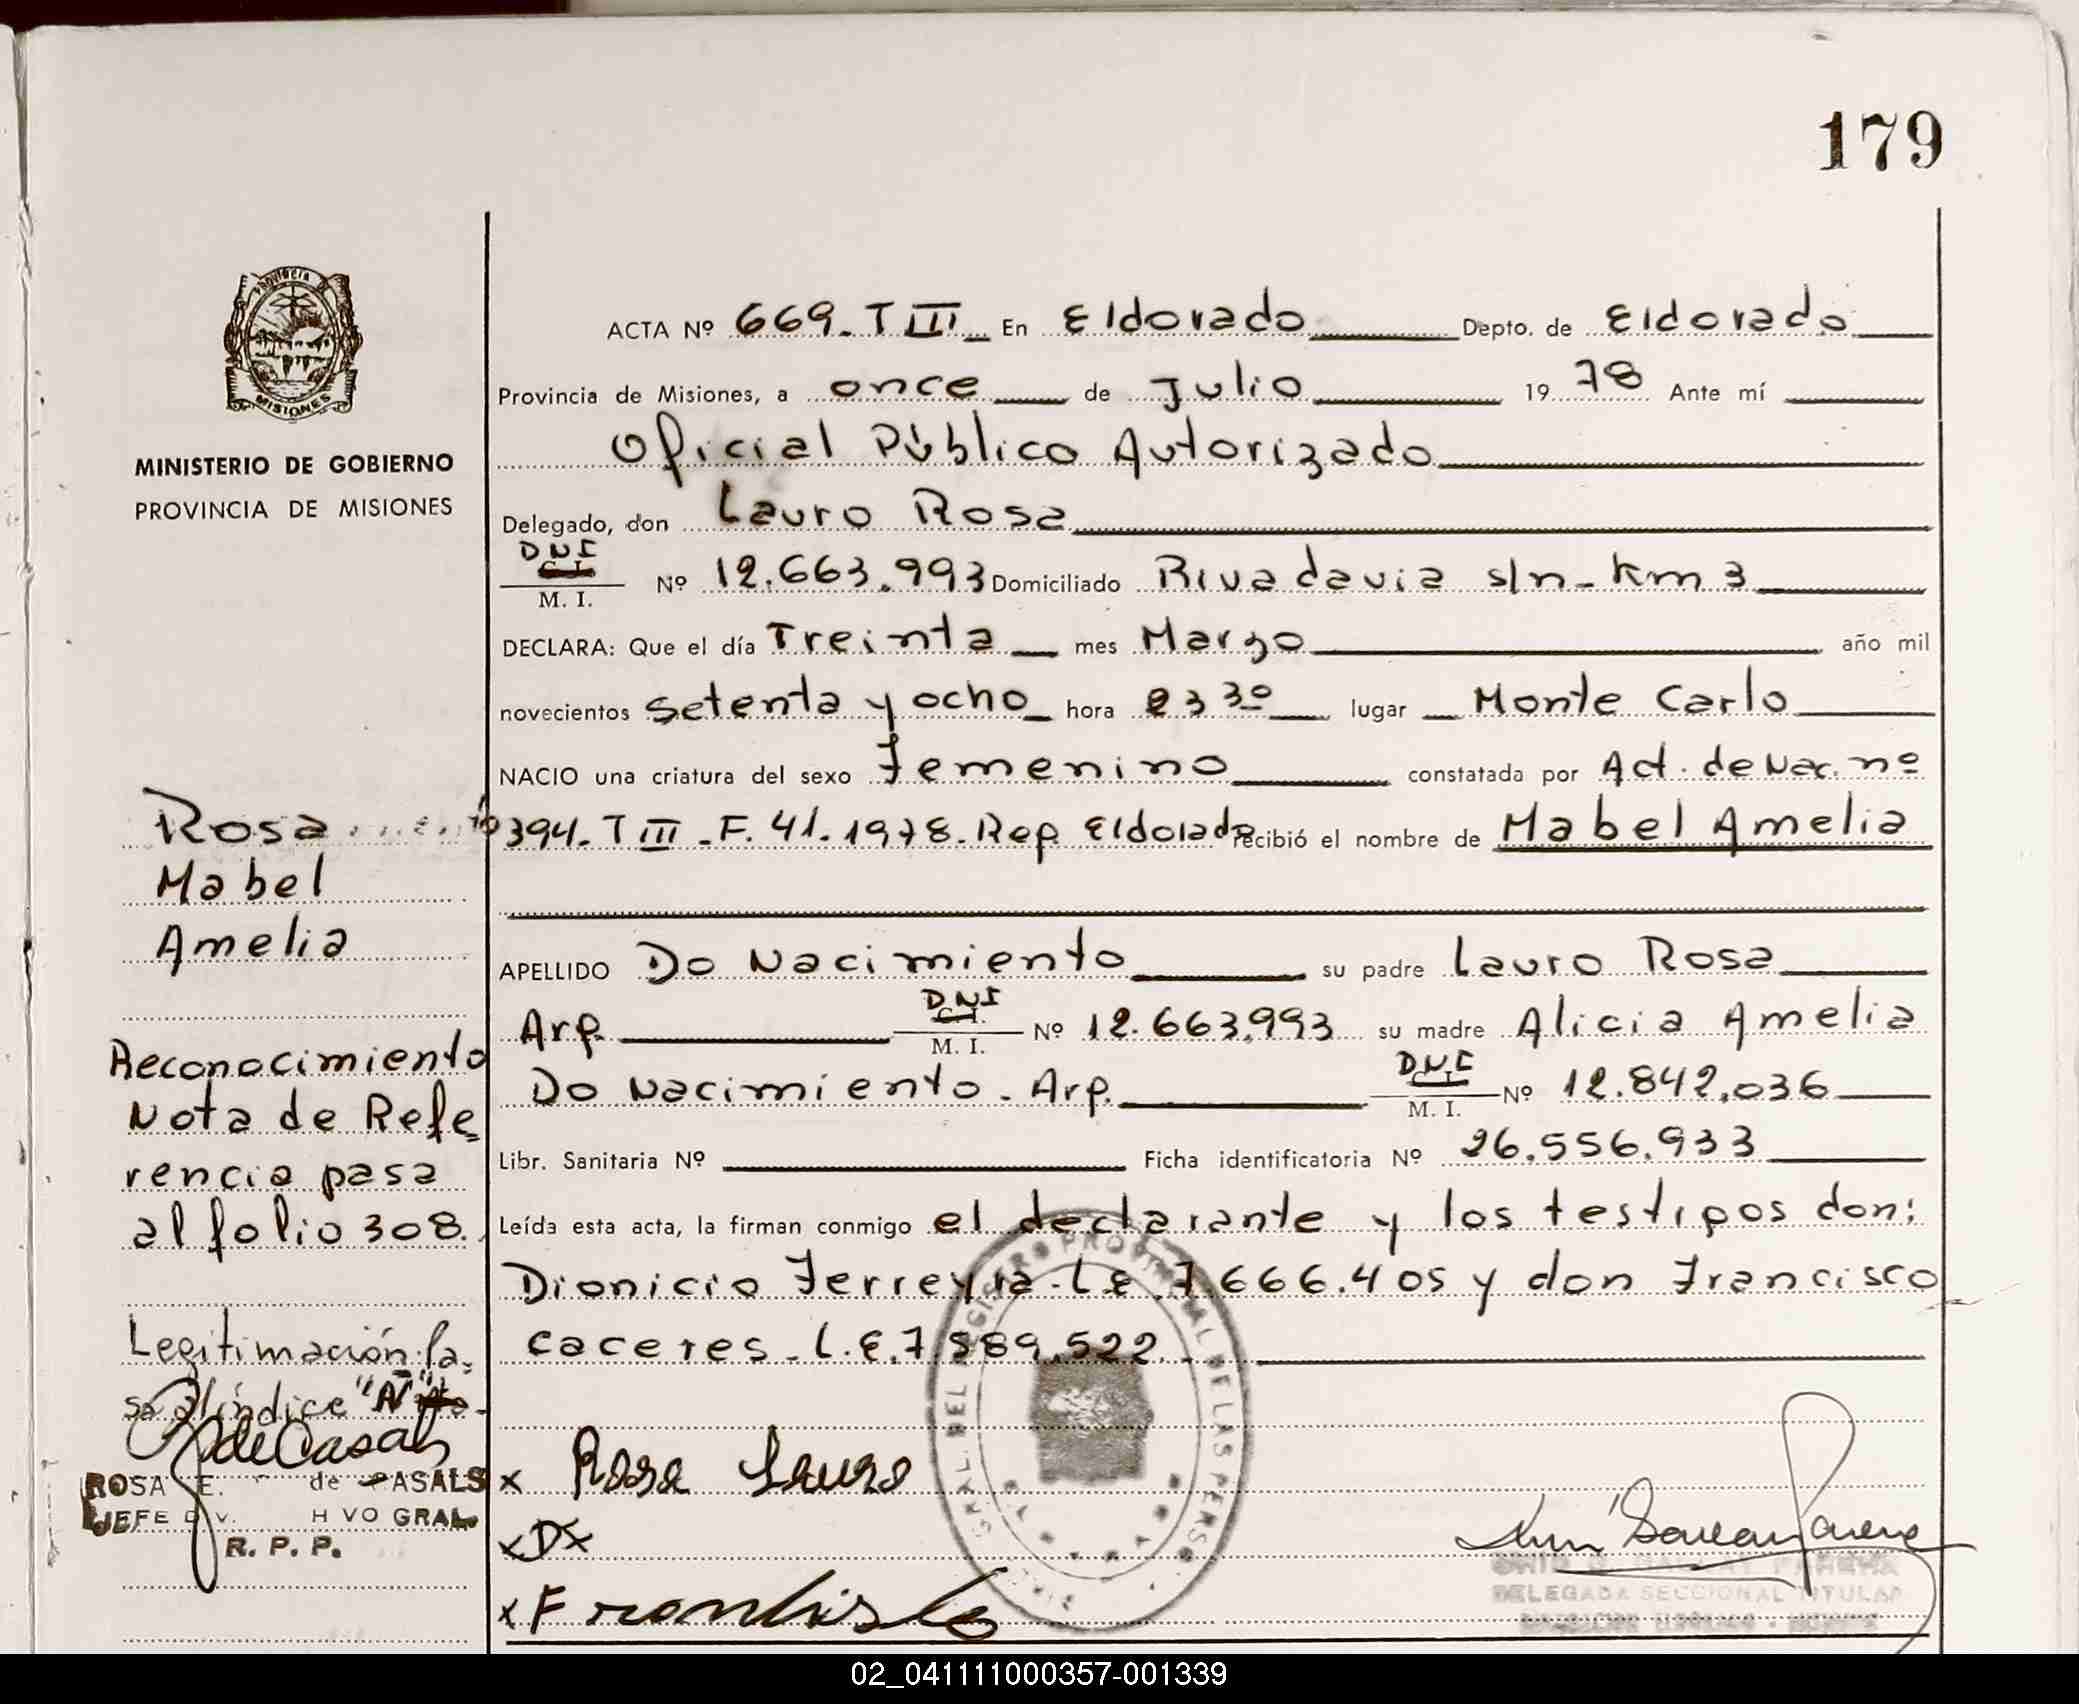 179
Provincia D
MISIONES
MINISTERIO DE GOBIERNO
PROVINCIA DE MISIONES
ACTA Nº 669. T III En Eldorado Depto. de Eldorado
Provincia de Misiones, a once de Julio 1978 Ante mí
Oficial Público Autorizado
Delegado, don Lauro Rosa
DNI
C. I.
M. I. Nº 12.663.993 Domiciliado Rivadavia s/n - Km 3
DECLARA: Que el día Treinta mes Marzo año mil
novecientos setenta y ocho hora 23 30 lugar Monte Carlo
NACIO una criatura del sexo Femenino constatada por Act. de Nac. nº
394. T III - F. 41. 1978. Rep. Eldorado recibió el nombre de Mabel Amelia
APELLIDO Do Nacimiento su padre Lauro Rosa
Arg. DNI C. I. M. I. Nº 12.663.993 su madre Alicia Amelia
Do Nacimiento. Arg. DNI C. I. M. I. Nº 12.842.036
Libr. Sanitaria Nº Ficha identificatoria Nº 26.556.933
Leída esta acta, la firman conmigo el declarante y los testigos don:
Dionicio Ferreyra - L E 7.666.405 y don Francisco
Caceres - L.E. 7.889.522.
Rosa
Mabel
Amelia
Reconocimiento
Nota de Refe
rencia pasa
al folio 308.
Legitimación Pa-
sa al índice "Ñ"
R de Casals
ROSA E. de CASALS
JEFE DIV. H VO GRAL.
R. P. P.
x Rosa Lauro
x D x
x F
GRAL. DEL REGISTRO PROVINCIAL DE LAS PERSO
DELEGADA SECCIONAL TITULAR
02_041111000357-001339